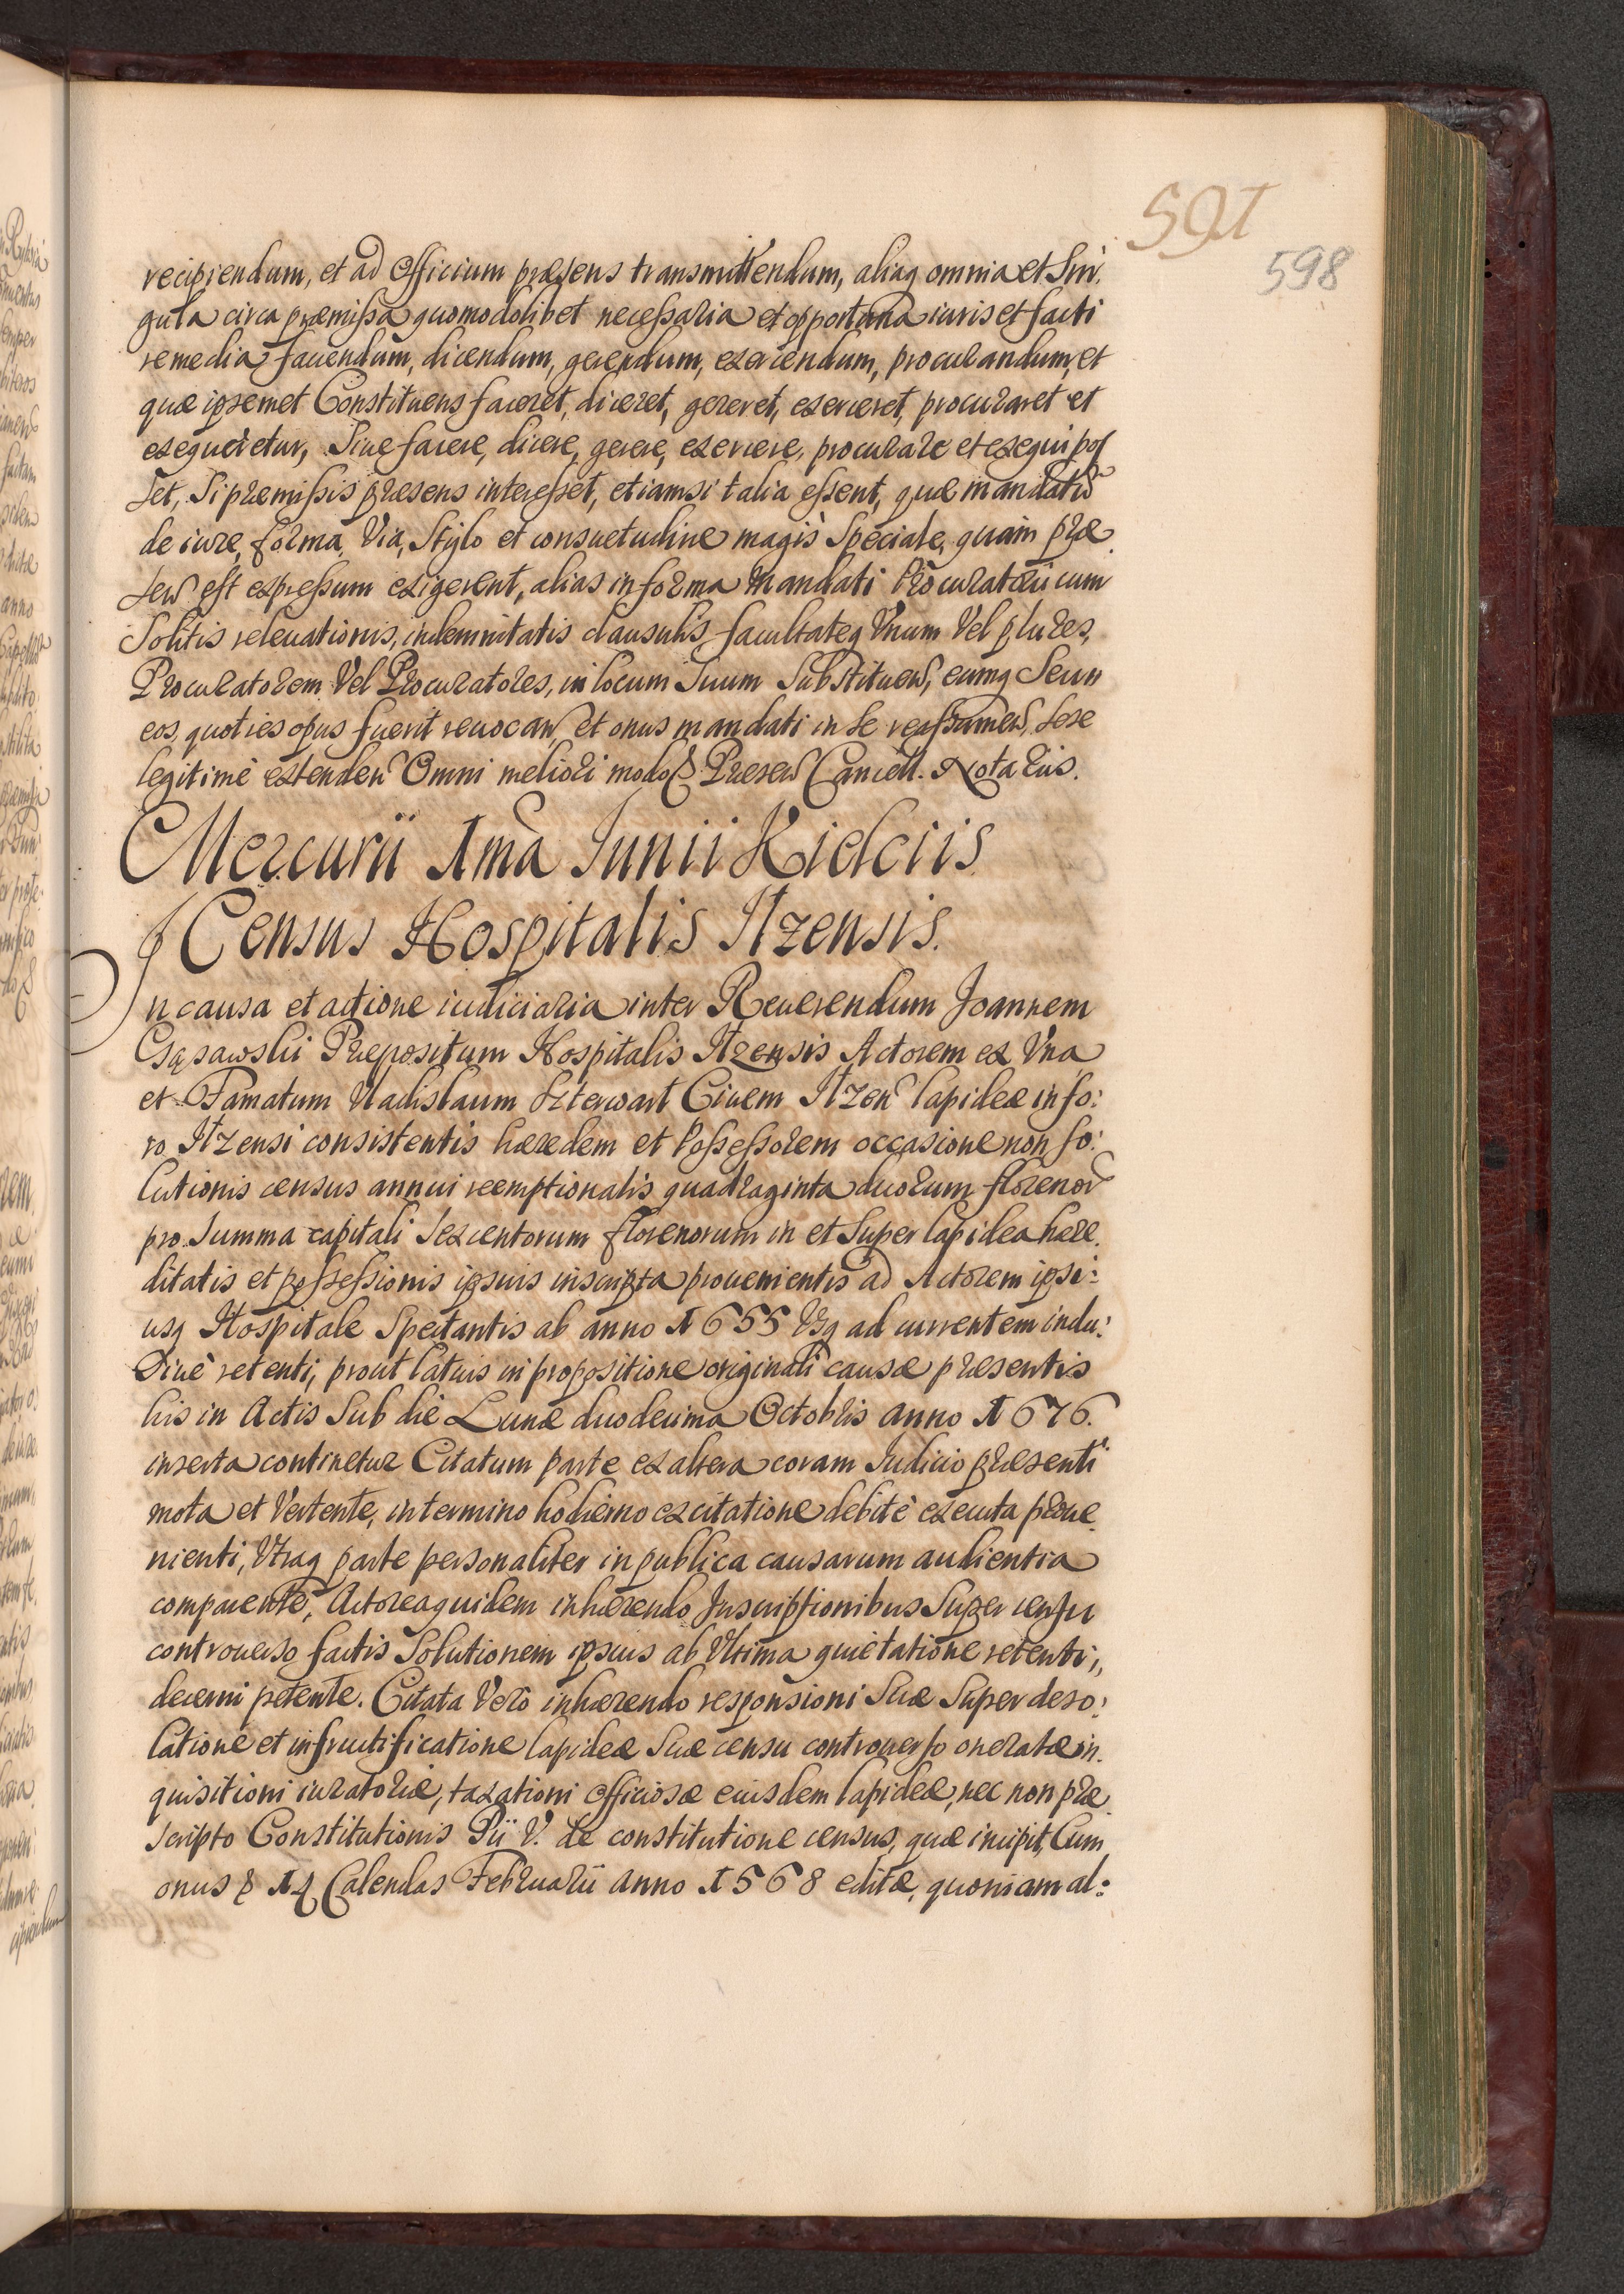 591
598
recipiendum, et ad Officium præsens transmittendum, aliaq omnia et Sin:
gula circa præmissa quomodolibet necessaria et opportuna iuris et facti
remedia faciendum, dicendum, gerendum, exercendum, procurandum, et
quæ ipsemet Constituens faceret, diceret, gereret, exerceret, procuraret et
exequeretur, Siue facere, dicere, gerere, exercere, procurare et exequi pos
set, Si præmissis præsens interesset, etiamsi talia essent, quæ mandatũ
de iure, forma, Via, Stylo et consuetudine magis Speciale, quam præ
sen est expressum exigerent, alias in forma Mandati Procuratorii cum
Solitis releuationis, indemnitatis clausulis, facultateq Vnum Vel plures,
Procuratorem Vel Procuratores, in locum Suum Substituen, eumq Seu
eos, quoties opus fuerit reuocan, et onus mandati in Se reassumen, Sese
legitimè extenden Omni meliori modo Præsen Cancell. Notariis.
Mercurii 1ma Junii Kielciis
Census Hospitalis Ilzensis.
In causa et actione iudiciaria inter Reuerendum Joannem
Csąsawski Præpositum Hospitalis Ilzensis Actorem ex Vna
et Famatum Vladislaum Szterwart Ciuem Ilzen lapideæ in fo:
ro Ilzensi consistentis hæredem et Possessorem occasione non so:
lutionis census annui reemptionalis quadraginta duorum florenor
pro Summa capitali Sexcentorum florenorum in et Super lapidea hære
ditatis et possessionis ipsius inscripta prouenientis ad Actorem ipsi:
usq Hospitale Spectantis ab anno 1655 Vsq ad currentem indu:
Siuè retenti, prout latius in propositione originali causæ præsentis
his in Actis Sub die Lunæ duodecima Octobris anno 1676.
inserta continetur Citatum parte ex altera coram Judicio præsenti
mota et Vertente, in termino hodierno ex citatione debitè executa proue
nienti, Vtraq parte personaliter in publica causarum audientia
comparente, Actorea quidem inhærendo Inscriptionibus Super censu
controuerso factis Solutionem ipsius ab Vltima quietatione retenti,
decerni petente. Citata Verò inhærendo responsioni Suæ Super deso:
latione et infructificatione lapideæ Suæ censu controuerso oneratæ in
quisitioni iuratoriæ, taxationi Officiosæ eiusdem lapideæ, nec non præ
scripto Constitutionis Pii V. de constitutione census, quæ incipit, Cum
onus 14 Calendas Februarii anno 1568 editæ, quoniam al: